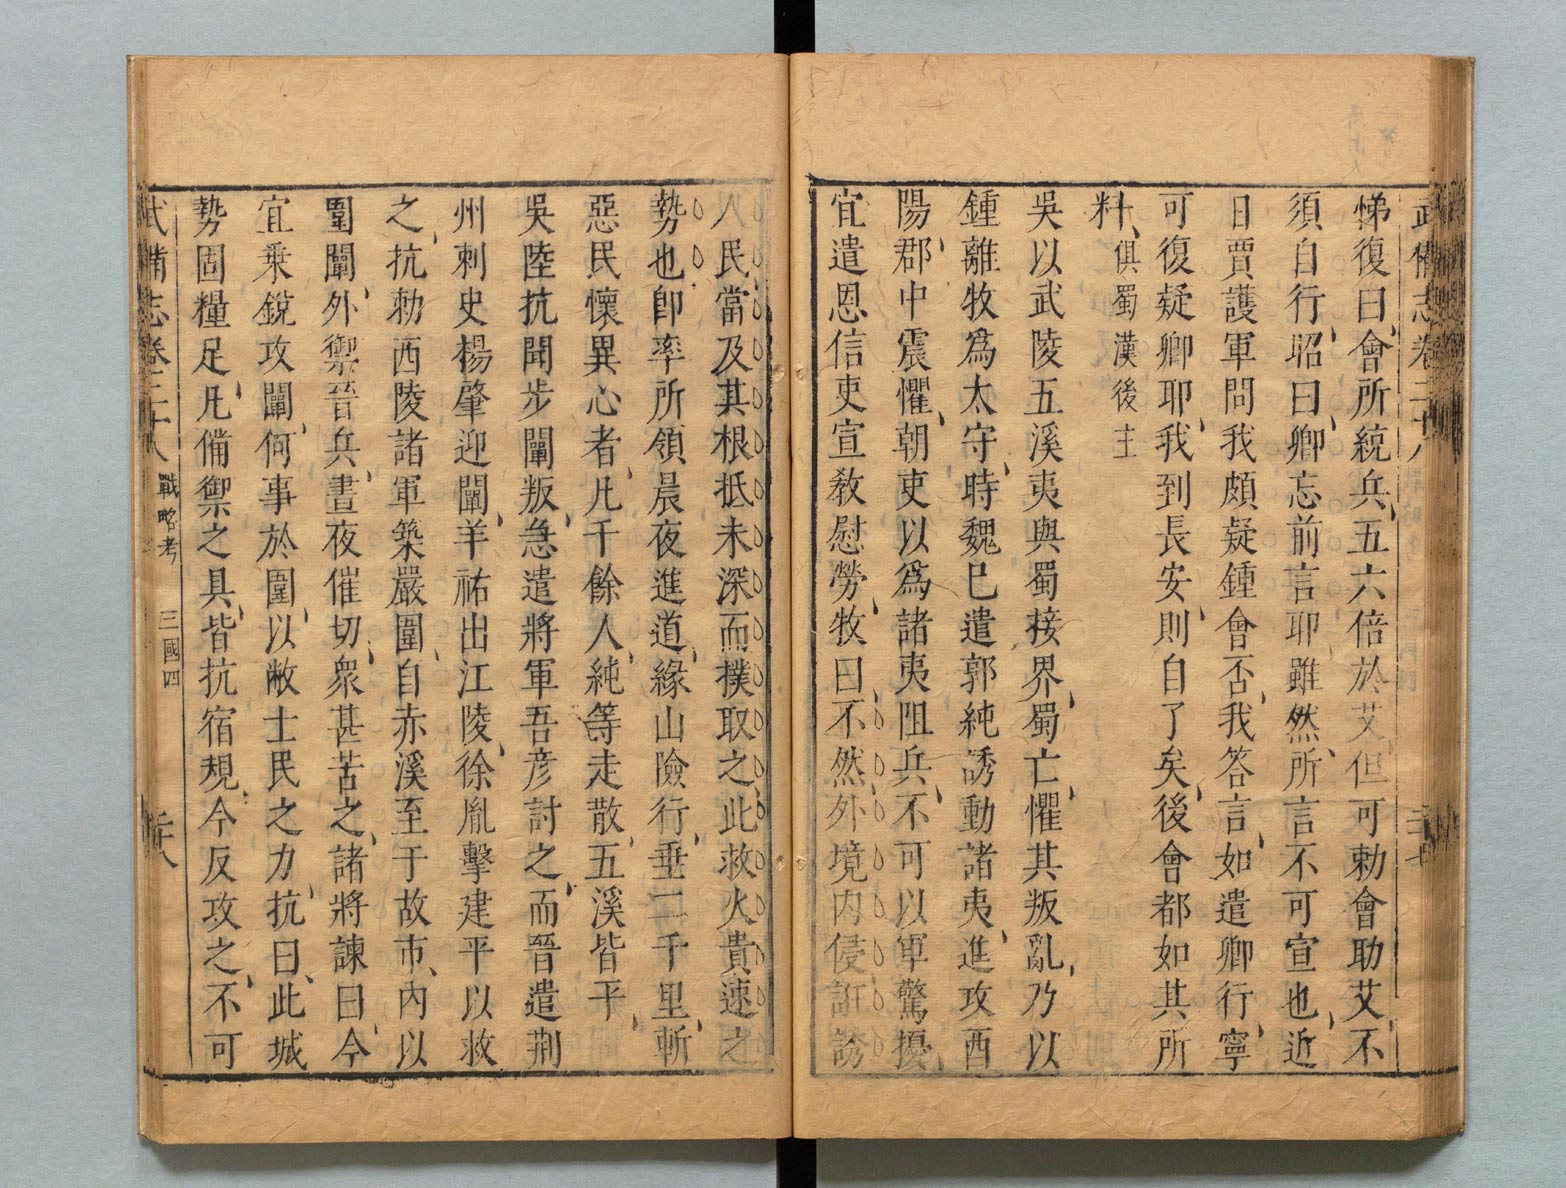 武備志卷二十八
三七
悌復曰會所統兵五六倍於艾但可勅會助艾不
須自行昭曰卿忘前言耶雖然所言不可宣也近
日賈護軍問我頗疑鍾會否我答言如遣卿行寧
可復疑卿耶我到長安則自了矣後會都如其所
料俱蜀漢後主
吳以武陵五溪夷與蜀接界蜀亡懼其叛亂乃以
鍾離牧為太守時魏已遣郭純誘動諸夷進攻酉
陽郡中震懼朝吏以為諸夷阻兵不可以軍驚擾
宜遣恩信吏宣敎慰勞牧曰不然外境內侵誑誘
人民當及其根抵未深而撲取之此救火貴速之
勢也卽率所領晨夜進道緣山險行垂二千里斬
惡民懷異心者凡千餘人純等走散五溪皆平
吳陸抗聞步闡叛急遣將軍吾彥討之而晉遣荆
州刺史楊肇迎闡羊祜出江陵徐胤擊建平以救
之抗勅西陵諸軍築嚴圍自赤溪至于故市內以
圍闡外禦晉兵晝夜催切衆甚苦之諸將諫曰今
宜乘銳攻闡何事於圍以敝士民之力抗曰此城
勢固糧足凡備禦之具皆抗宿規今反攻之不可
武備志卷二十八 戰略考 三國四 二八